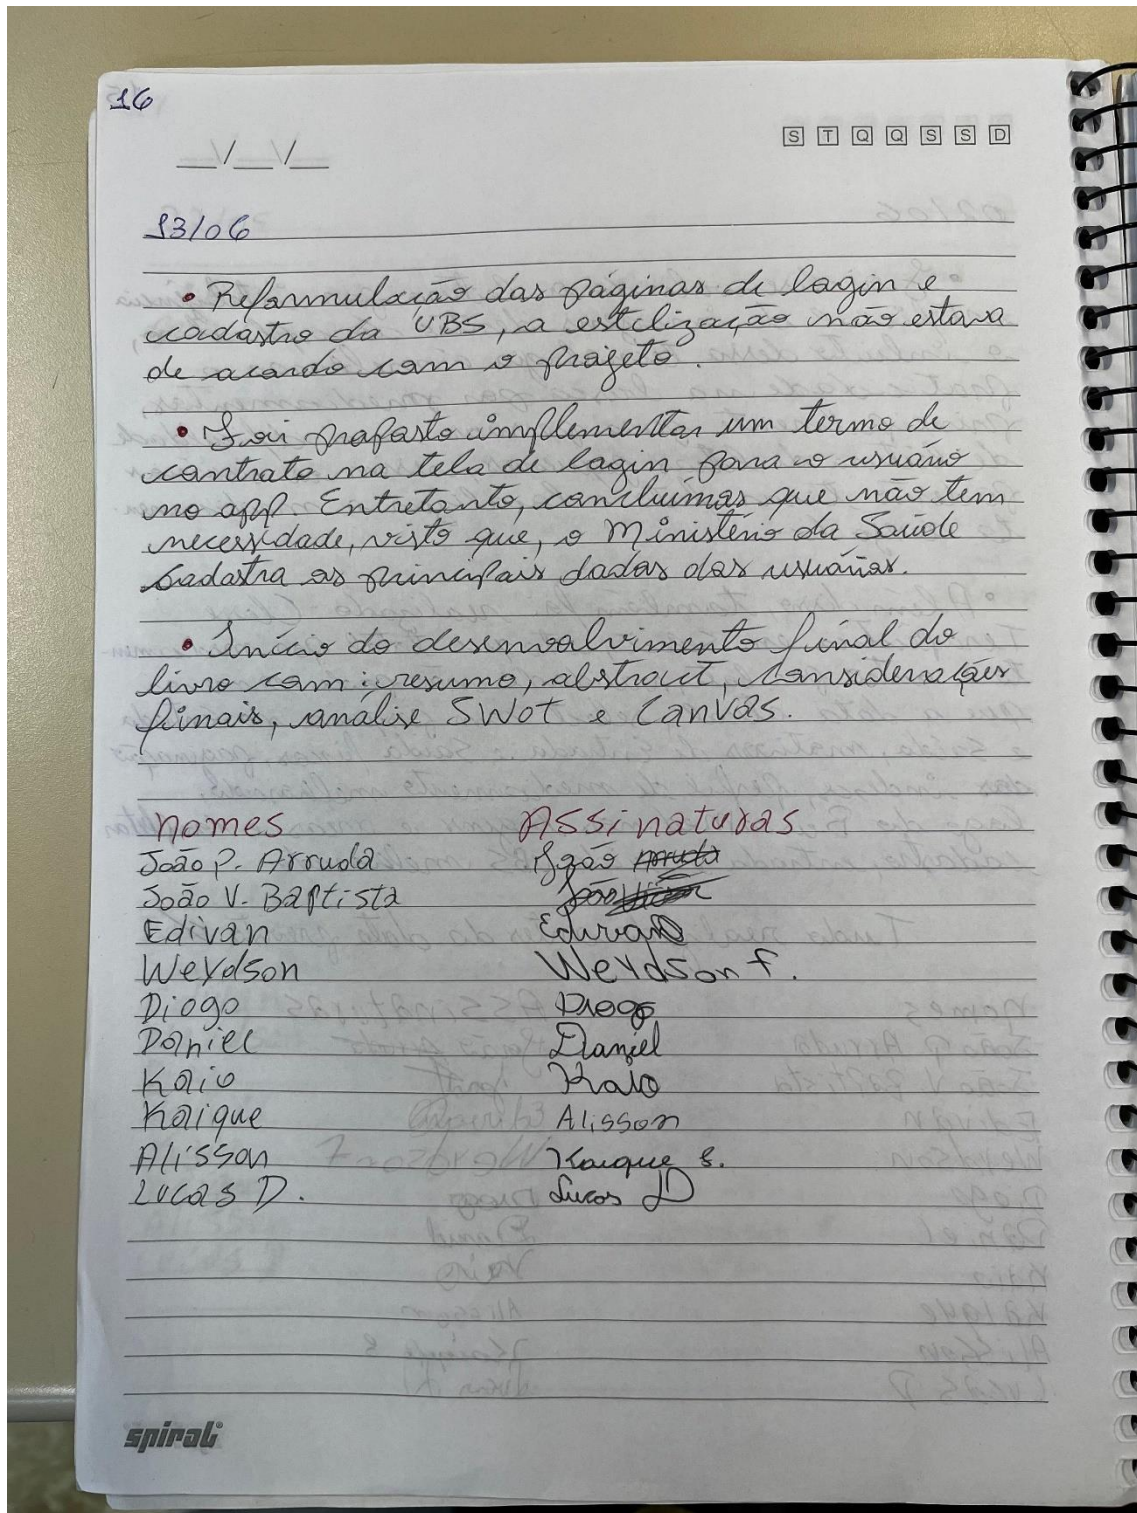 16
__/__/__ S T Q Q S S D
13/06
• Reformulação das páginas de login e
cadastro da UBS, a estilização não estava
de acordo com o projeto.
• Foi proposto implementar um termo de
contrato na tela de login para o usuário
no app. Entretanto, concluímos que não tem
necessidade, visto que, o Ministério da Saúde
cadastra os principais dados dos usuários.
• Início do desenvolvimento final do
livro com: resumo, abstract, considerações
finais, análise SWOT e CANVAS.
Nomes Assinaturas
João P. Arruda João Arruda
João V. Baptista João
Edivan Edivan
Weydson Weydson F.
Diogo Diogo
Daniel Daniel
Kaio Kaio
Kaique Alisson
Alisson Kaique S.
Lucas D. Lucas D
spiral®